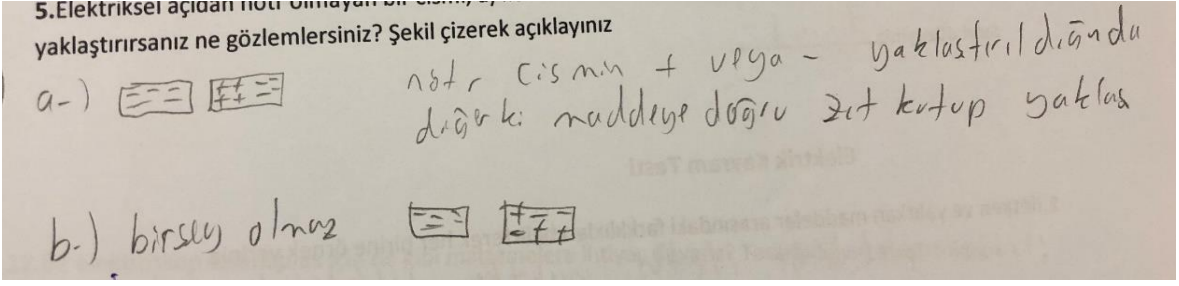 5.Elektriksel açıdan nötr olmayan bir cismi,
yaklaştırırsanız ne gözlemlersiniz? Şekil çizerek açıklayınız
a-) nötr cismin + veya - yaklastırıldığında
diğerki maddeye doğru zıt kutup yaklas
b-) birsey olmaz